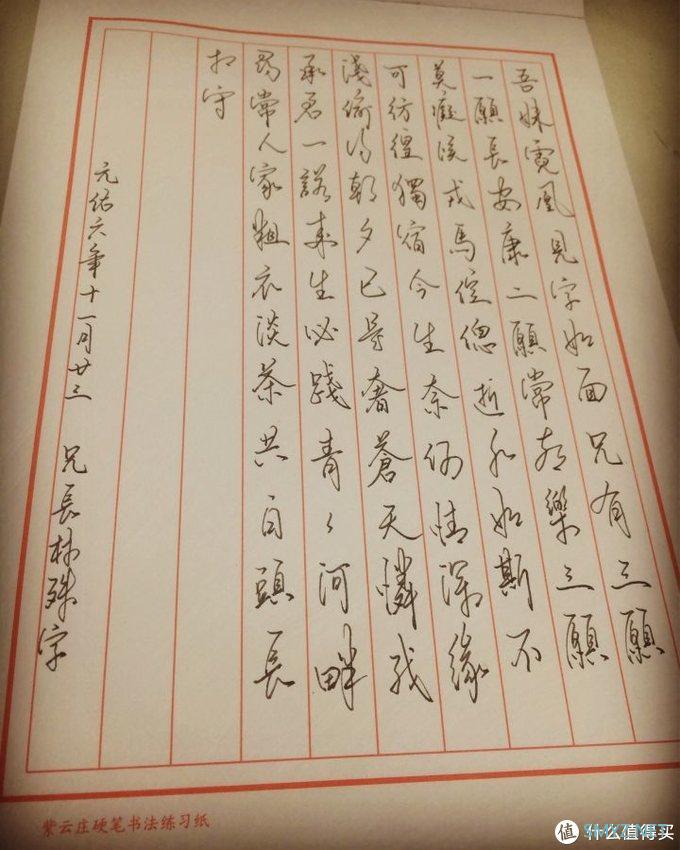 吾妹霓凰見字如面兄有三願
一願長安康二願常喜樂三願
莫癡候戎馬倥傯逝水如斯不
可彷徨獨宿今生奈何情深緣
淺偷得朝夕已是奢蒼天憐我
承君一諾來生必踐青々河畔
尋常人家粗衣淡茶共白頭長
相守
元佑六年十一月廿三 兄長林殊字
紫云庄硬笔书法练习纸
值 什么值得买